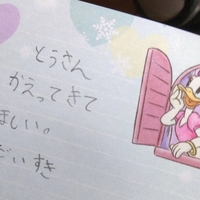 とうさん
かえってきて
ほしい。
だいすき